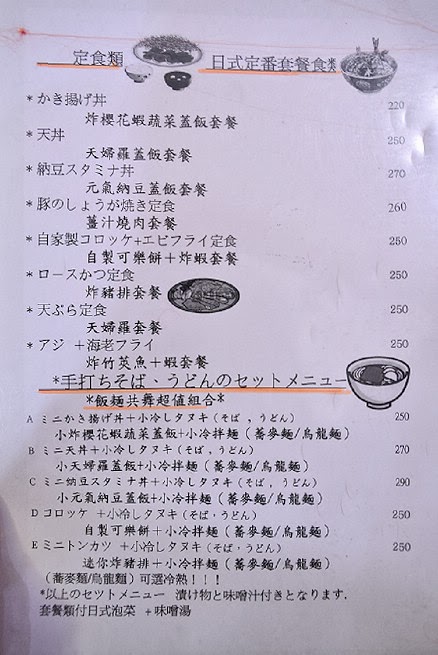 定食類 日式定番套餐食類
*かき揚げ丼 220
炸櫻花蝦蔬菜蓋飯套餐
*天丼 250
天婦羅蓋飯套餐
*納豆スタミナ丼 270
元氣納豆蓋飯套餐
*豚のしょうが焼き定食 260
薑汁燒肉套餐
*自家製コロッケ+エビフライ定食 250
自製可樂餅+炸蝦套餐
*ロースかつ定食 250
炸豬排套餐
*天ぷら定食 250
天婦羅套餐
*アジ +海老フライ 250
炸竹莢魚+蝦套餐
*手打ちそば・うどんのセットメニュー
*飯麵共舞超值組合*
A ミニかき揚げ丼+小冷しタヌキ(そば , うどん) 250
小炸櫻花蝦蔬菜蓋飯+小冷拌麵(蕎麥麵/烏龍麵)
B ミニ天丼+小冷しタヌキ(そば , うどん) 270
小天婦羅蓋飯+小冷拌麵(蕎麥麵/烏龍麵)
C ミニ納豆スタミナ丼+小冷しタヌキ(そば , うどん) 290
小元氣納豆蓋飯+小冷拌麵(蕎麥麵/烏龍麵)
D コロッケ +小冷しタヌキ(そば・うどん) 250
自製可樂餅+小冷拌麵(蕎麥麵/烏龍麵)
E ミニトンカツ +小冷しタヌキ(そば・うどん) 250
迷你炸豬排+小冷拌麵(蕎麥麵/烏龍麵)
(蕎麥麵/烏龍麵)可選冷熱!!!
*以上のセットメニュー 漬け物と味噌汁付きとなります.
套餐類付日式泡菜 +味噌湯